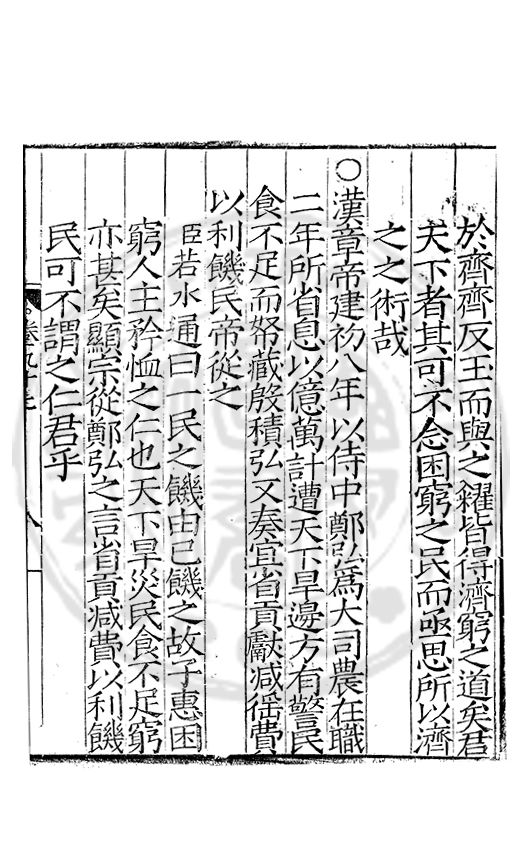 於齊齊反玉而與之糴皆得濟窮之道矣君
天下者其可不念困窮之民而亟思所以濟
之之術哉
○漢章帝建初八年以侍中鄭弘爲大司農在職
二年所省息以億萬計遭天下旱邊方有警民
食不足而帑藏殷積弘又奏宜省貢獻減徭費
以利饑民帝從之
臣若水通曰一民之饑由己饑之故子惠困
窮人主矜恤之仁也天下旱災民食不足窮
亦甚矣顯宗從鄭弘之言省貢減費以利饑
民可不謂之仁君乎